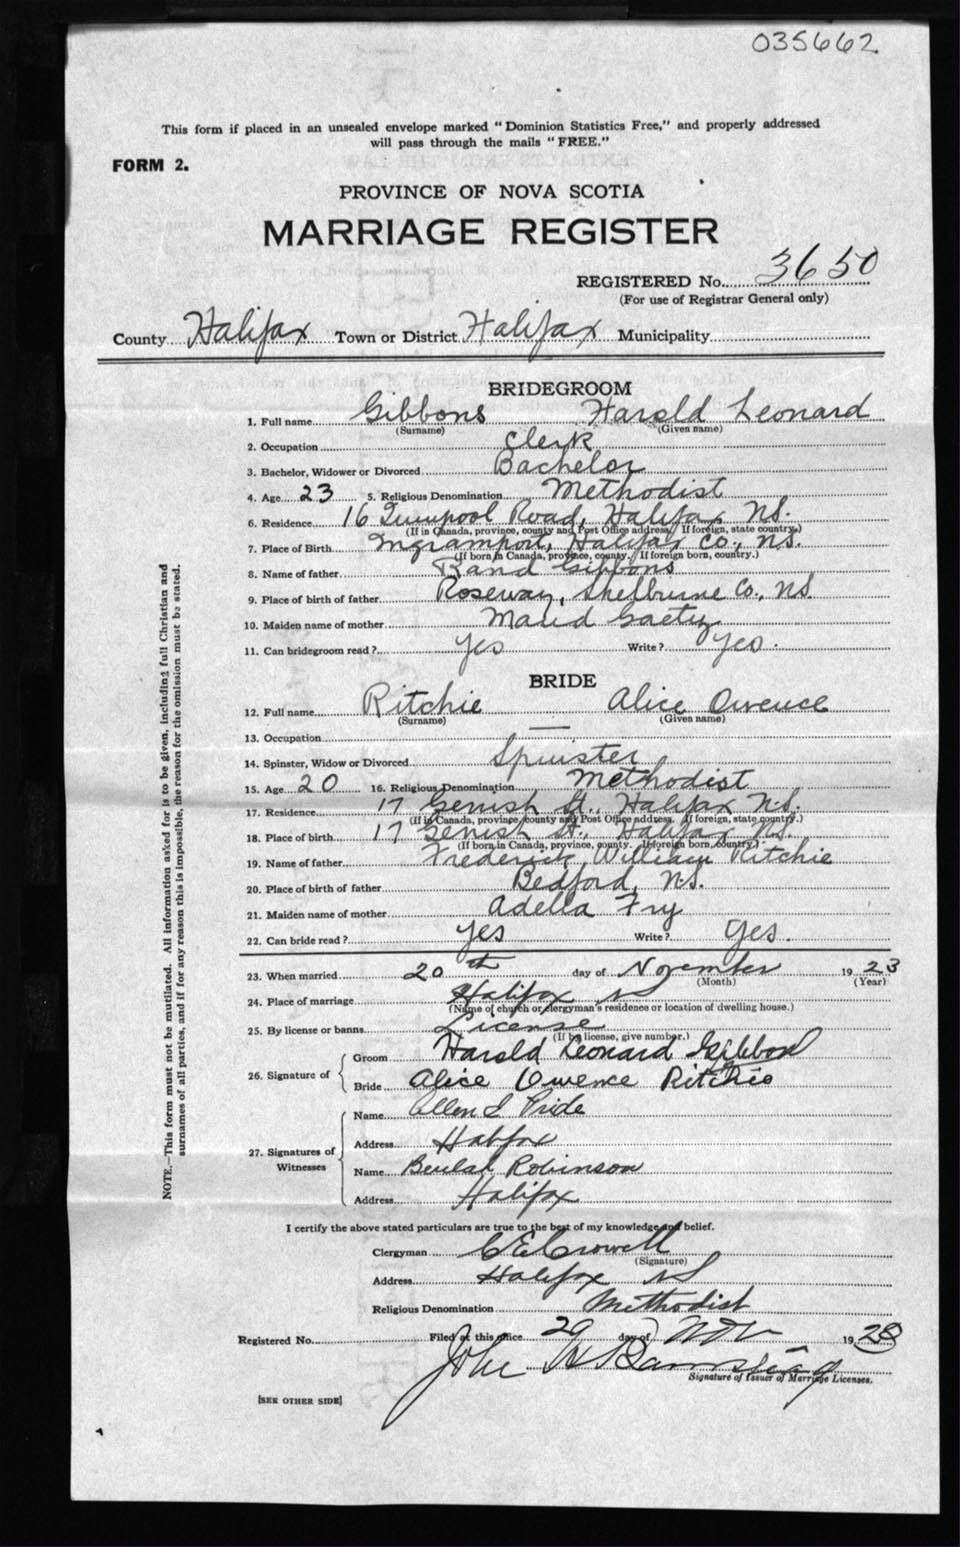 035662
This form if placed in an unsealed envelope marked "Dominion Statistics Free," and properly addressed
will pass through the mails "FREE."
FORM 2.
PROVINCE OF NOVA SCOTIA
MARRIAGE REGISTER
REGISTERED No. 3650
(For use of Registrar General only)
County Halifax Town or District Halifax Municipality
BRIDEGROOM
1. Full name Gibbons Harold Leonard
(Surname) (Given name)
2. Occupation Clerk
3. Bachelor, Widower or Divorced Bachelor
4. Age 23 5. Religious Denomination Methodist
6. Residence 16 Road, Halifax N.S.
(If in Canada, province, county and Post Office address. If foreign, state country.)
7. Place of Birth Ingramport, Halifax Co., N.S.
(If born in Canada, province, county. If foreign born, country.)
8. Name of father Rand Gibbons
9. Place of birth of father Roseway, Shelburne Co., N.S.
10. Maiden name of mother Maud Gaetz
11. Can bridegroom read? Yes Write? Yes.
BRIDE
12. Full name Ritchie Alice Owence
(Surname) (Given name)
13. Occupation —
14. Spinster, Widow or Divorced Spinster
15. Age 20 16. Religious Denomination Methodist
17. Residence 17 St., Halifax N.S.
(If in Canada, province, county and Post Office address. If foreign, state country.)
18. Place of birth 17 St., Halifax N.S.
(If born in Canada, province, county. If foreign born, country.)
19. Name of father Frederick William Ritchie
20. Place of birth of father Bedford, N.S.
21. Maiden name of mother Adella Fry
22. Can bride read? Yes Write? Yes.
23. When married 20th day of November 1923
(Month) (Year)
24. Place of marriage Halifax NS
(Name of church or clergyman's residence or location of dwelling house.)
25. By license or banns License
(If by license, give number.)
26. Signature of
Groom Harold Leonard Gibbon
Bride Alice Owence Ritchie
27. Signatures of Witnesses
Name Pride
Address Halifax
Name Beulah Robinson
Address Halifax
I certify the above stated particulars are true to the best of my knowledge and belief.
Clergyman C E Crowell
(Signature)
Address Halifax NS
Religious Denomination Methodist
Registered No. Filed at this office 20 day of Nov 1923
John
Signature of Issuer of Marriage Licenses.
[SEE OTHER SIDE]
NOTE.—This form must not be mutilated. All information asked for is to be given, including full Christian and
surnames of all parties, and if for any reason this is impossible, the reason for the omission must be stated.